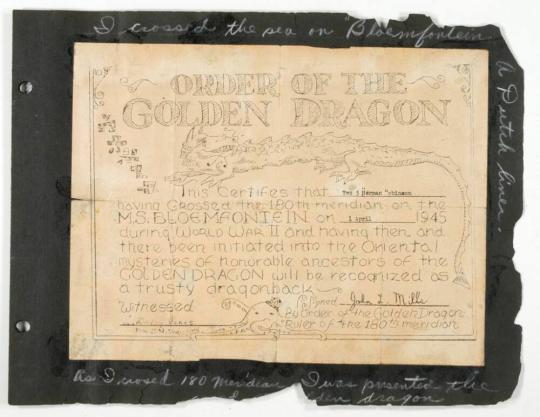 I crossed the sea on "Bloemfontein
a Dutch liner.
ORDER OF THE
GOLDEN DRAGON
This Certifes that Herman
having Crossed the 180th meridian on the
M.S. BLOEMFONTEIN on 1 April 1945
during WORLD WAR II and having then and
there been initiated into the Oriental
mysteries of honorable ancestors of the
GOLDEN DRAGON will be recognized as
a trusty dragonback
Signed John L. Mills
Witnessed
By Order of the Golden Dragon
Ruler of the 180th meridian
As I crossed 180 meridean I was presented the
dragon